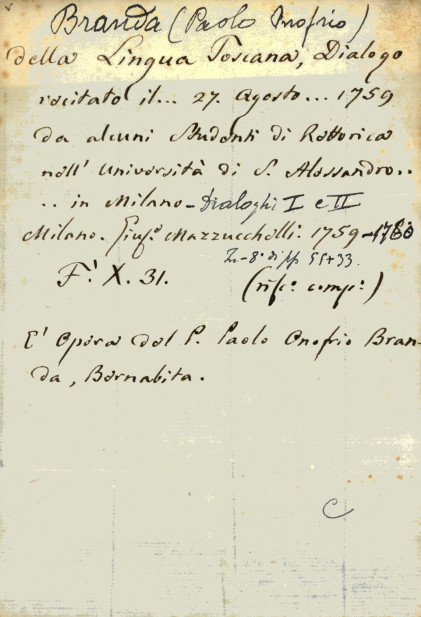 Branda (Paolo Onofrio)
della Lingua Toscana, Dialogo
recitato il... 27. Agosto... 1759
da alcuni Studenti di Rettorica
nell' Università di S. Alessandro..
.. in Milano - Dialoghi I e II
Milano. Gius.e Mazzucchelli. 1759-1760
In-8° di pp 55+33.
F.' X. 31.
(rif.o comp.o)
E' Opera del P. Paolo Onofrio Bran-
da, Barnabita.
C